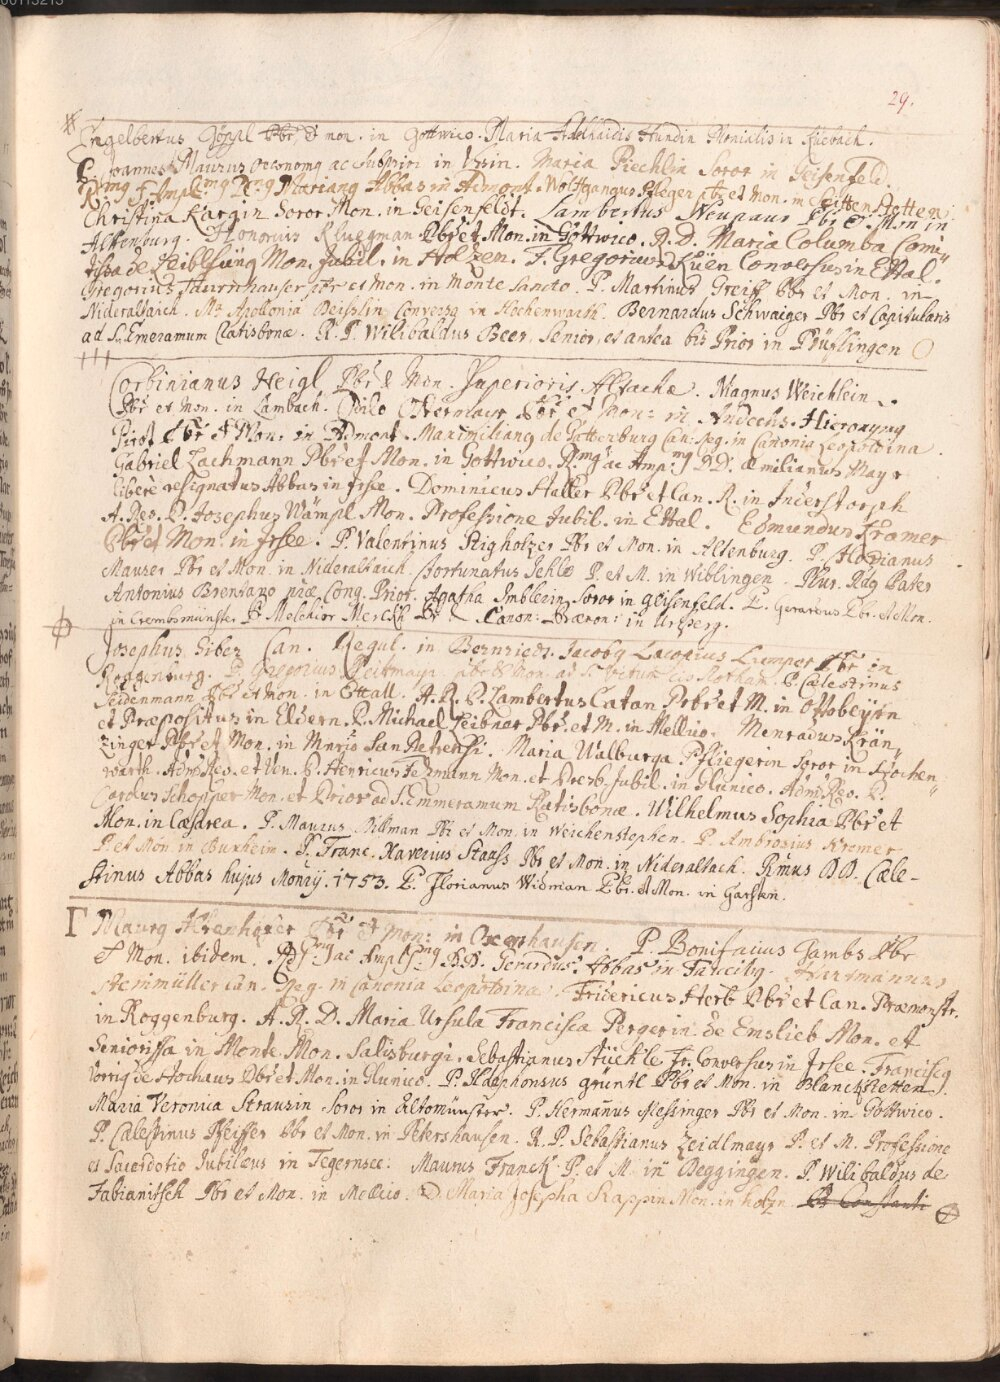 00113213
29.
Engelbertus Göppl Pbr et mon. in Gottwico. Maria Adelhaidis Hundin Monialis in Kuebach.
P. Joannes Maurus oeconomg ac Subprior in Vrsin. Maria Riechlin Soror in Geisenfeld.
Rmg et Ampl.mg Dng Mariang Abbas in Admont. Wolffgangus Pfleger pbr et Mon. in Seittenstetten.
Christina Kargin Soror Mon. in Geisenfeldt. Lambertus Neupaur Pbr & Mon in
Altenburg. Honorius Kluegman Pbr et Mon. in Gottwico. R. D. Maria Columba Comi"
tissa de Leiblfing Mon. Jubil. in Holzen. F. Gregorius Küen Conversus in Ettal.
Gregorius pbr et Mon. in Monte Sancto. P. Martinus Greiff Pbr et Mon. in
Nideraltaich. Ma Apollonia Beisslin Conversa in Hochenwarth. Bernardus Schwaiger Pbr et Capitularis
ad S. Emeramum Ratisbonæ. R. P. Wilibaldus Beer, Senior, et antea bis Prior in Prüflingen
Corbinianus Heigl Pbr & Mon. Superioris Altachæ. Magnus Weichlein
Pbr et Mon. in Lambach. Otilo Obermayr Pbr et Mon: in Andechs. Hieronymg
Pirot Pbr et Mon: in Admont. Maximiliang de Gottenburg Can: Reg. in Canonia Leopoldina.
Gabriel Lachmann Pbr et Mon. in Gottwico. Rmg ac Amp:mg DD. Æmilianus Mayr
liberè resignatus Abbas in Irsee. Dominicus Haller Pbr et Can. R. in Inderstorph
A. Res. P. Josephus Wämpl Mon. Professione Jubil. in Ettal. Edmundus Kramer
Pbr et Mon. in Irsee. P. Valentinus Stigholzer Pbr et Mon. in Altenburg. P. Flodianus
Mauser Pbr et Mon. in Nideraltaich. Fortunatus Jehle P. et M. in Wiblingen. Plur. Rdg Pater
Antonius Brentano præ. Cong. Prior. Agatha Imblerin Soror in geisenfeld. P. Gerardus Pbr. et Mon.
in Crembsmünster P. Melchior Merckh Pr & Canon: Præmon: in Ursperg.
Josephus Giber Can. Regul. in Bernriedt. Jacobg Lacopius Lumper Pbr in
Roggenburg. P. Gregorius Reitmayr pbr & Mon. ad S. Vitum P. Cælestinus
Seidenmann Pbr et Mon. in Ettall. A. R. P. Lambertus Catan Pr br et M. in Ottobeyrn
et Præpositus in Eldern. P. Michael Leibner Pbr. et M. in Mellico. Menradus Krän"
zinger Pbr et Mon. in Mnrio San Petrensi. Maria Walburga Pfliegerin Soror in Hochen"
warth. Admd Res. et Ven. P. Henricus Fezmann Mon. et Presb. Jubil. in Glunico. Adm Res. P.
Carolus Schopper Mon. et Prior ad S. Emmeramum Ratisbonæ. Wilhelmus Sophia Pbr et
Mon. in Cæsarea. P. Maurus Dillman Pbr et Mon. in Weichenstephen. P. Ambrosius Kromer
P. et Mon. in Buxheim. P. Franc. Xaverius Stauss Pbr et Mon. in Nideraltach. Rmus DD. Cæle-
stinus Abbas hujus Monrÿ. 1753. P. Florianus Widman Pbr. et Mon. in Garsten.
Maurg Pbr et Mon: in Oxenhausen. P. Bonifacius Jambs Pbr
et Mon. ibidem. Rdsmg ac Amplsmg DD. Gerardus Abbas in Hartmannus
Steinmüller Can. Reg. in Canonia Leopoldina. Fridericus Herb Pbr et Can. Præmonstr.
in Roggenburg. A. R. D. Maria Ursula Francisca Pergerin de Emslieb Mon. et
Seniorissa in Monte Mon. Salisburgi. Sebastianus Stückle Fr. Conversus in Irsee. Franciscg
Vorrig de Hochaus Pbr et Mon. in Glunico. P. Ildephonsus Grüntl Pbr et Mon. in Blanckstetten.
Maria Veronica Strausin Soror in Altomünster. P. Hermanus Messinger Pbr et Mon. in Gottwico.
P. Cælestinus Pfeiffer Pbr et Mon. in Petershausen. R. P. Sebastianus Zeidlmayr P. et M. Professione
et Sacerdotio Jubilæus in Tegernsee. Maurus Franck P. et M. in Deggingen. P. Wilibaldus de
Fabianitsch Pbr et Mon. in Mellico. D. Maria Josepha Rappin Mon. in holzn. P. Constanti